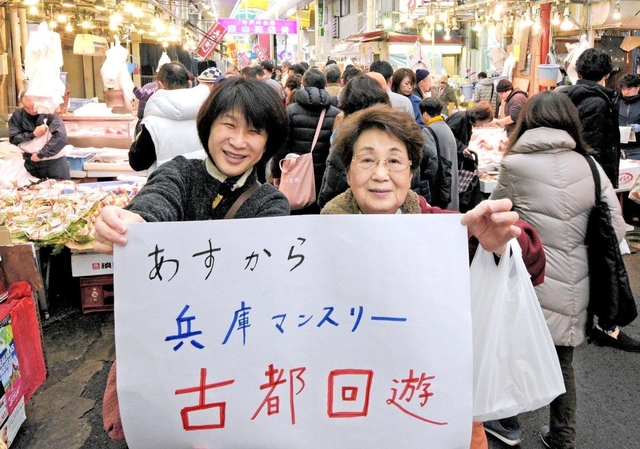 あすから
兵庫マンスリー
古都回遊